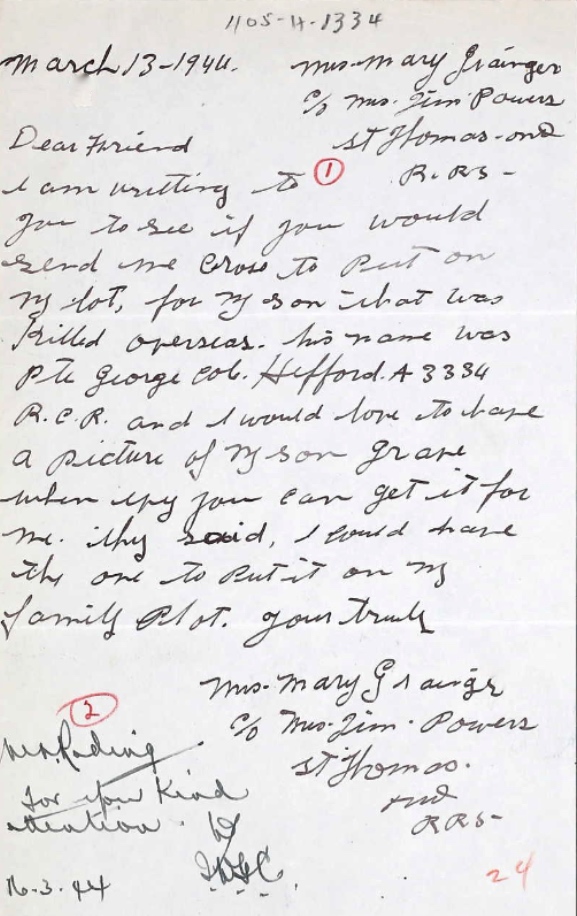 1105-H-1334
March 13-1944.
Mrs. Mary Grainger
c/o Mrs. Jim Powers
St Thomas-Ont
R.R5-
Dear Friend
1
I am writting to
you to see if you would
send me Cross to Put on
My lot, for My son that was
Killed overseas. his name was
Pte George Hefford. A 3334
R.C.R. and I would love to have
a Picture of My son grave
when you can get it for
me. they said, I could have
the one to Put it on My
family Plot. your truly
Mrs. Mary Grainger
c/o Mrs. Jim. Powers
St Thomas.
Ont
RR5-
2
for your Kind
attention.
16.3.44
24